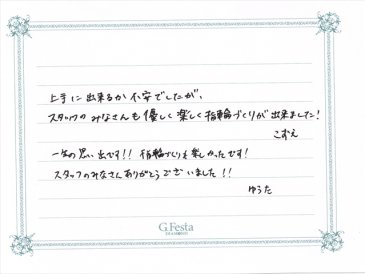 上手に出来るか不安でしたが、
スタッフのみなさんも優しく楽しく指輪づくりが出来ました!
こずえ
一生の思い出です!! 指輪づくりも楽しかったです!
スタッフのみなさんありがとうございました!!
ゆうた
G.Festa
DIAMOND